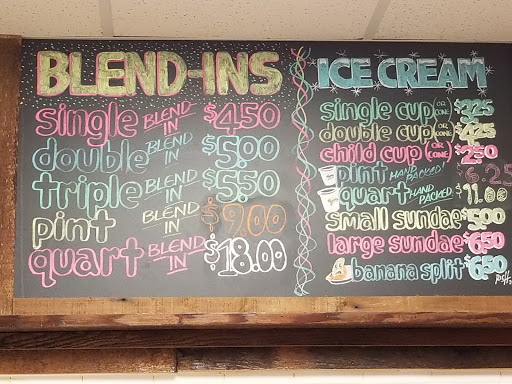 BLEND-INS
single BLEND IN $4.50
double BLEND IN $5.00
triple BLEND IN $5.50
pint BLEND IN $9.00
quart BLEND IN $18.00
ICE CREAM
single cup (OR CONE) $3.25
double cup (OR CONE) $4.25
child cup (OR CONE) $2.50
pint HAND PACKED! $6.25
quart HAND PACKED $11.00
small sundae $5.00
large sundae $6.50
banana split $6.50